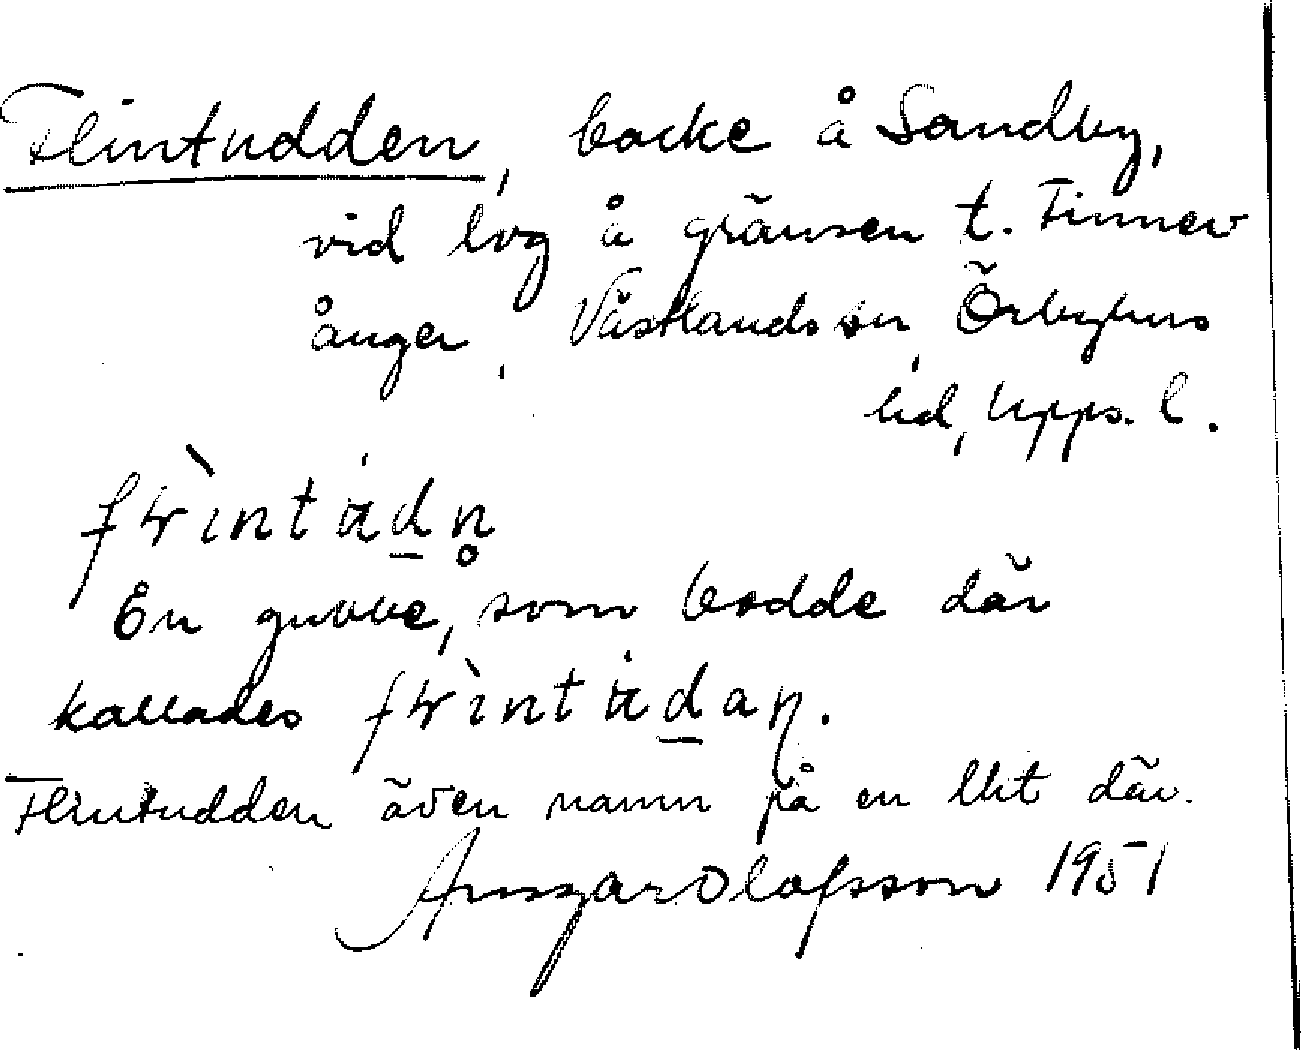 Flintudden, backe å Sandby,
vid lvg å gränsen t. Finner
ånger, Västlands sn, Örbyhus
hd, Upps. l.
En gubbe, som bodde där
kallades
Flintudden även namn på en lht där.
Ansgar Olafsson 1951